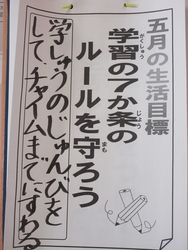 五月の生活目標
がくしゅう じょう
学習の7か条の
まも
ルールを守ろう
学しゅうのじゅんびを
して、チャイムまでにすわる